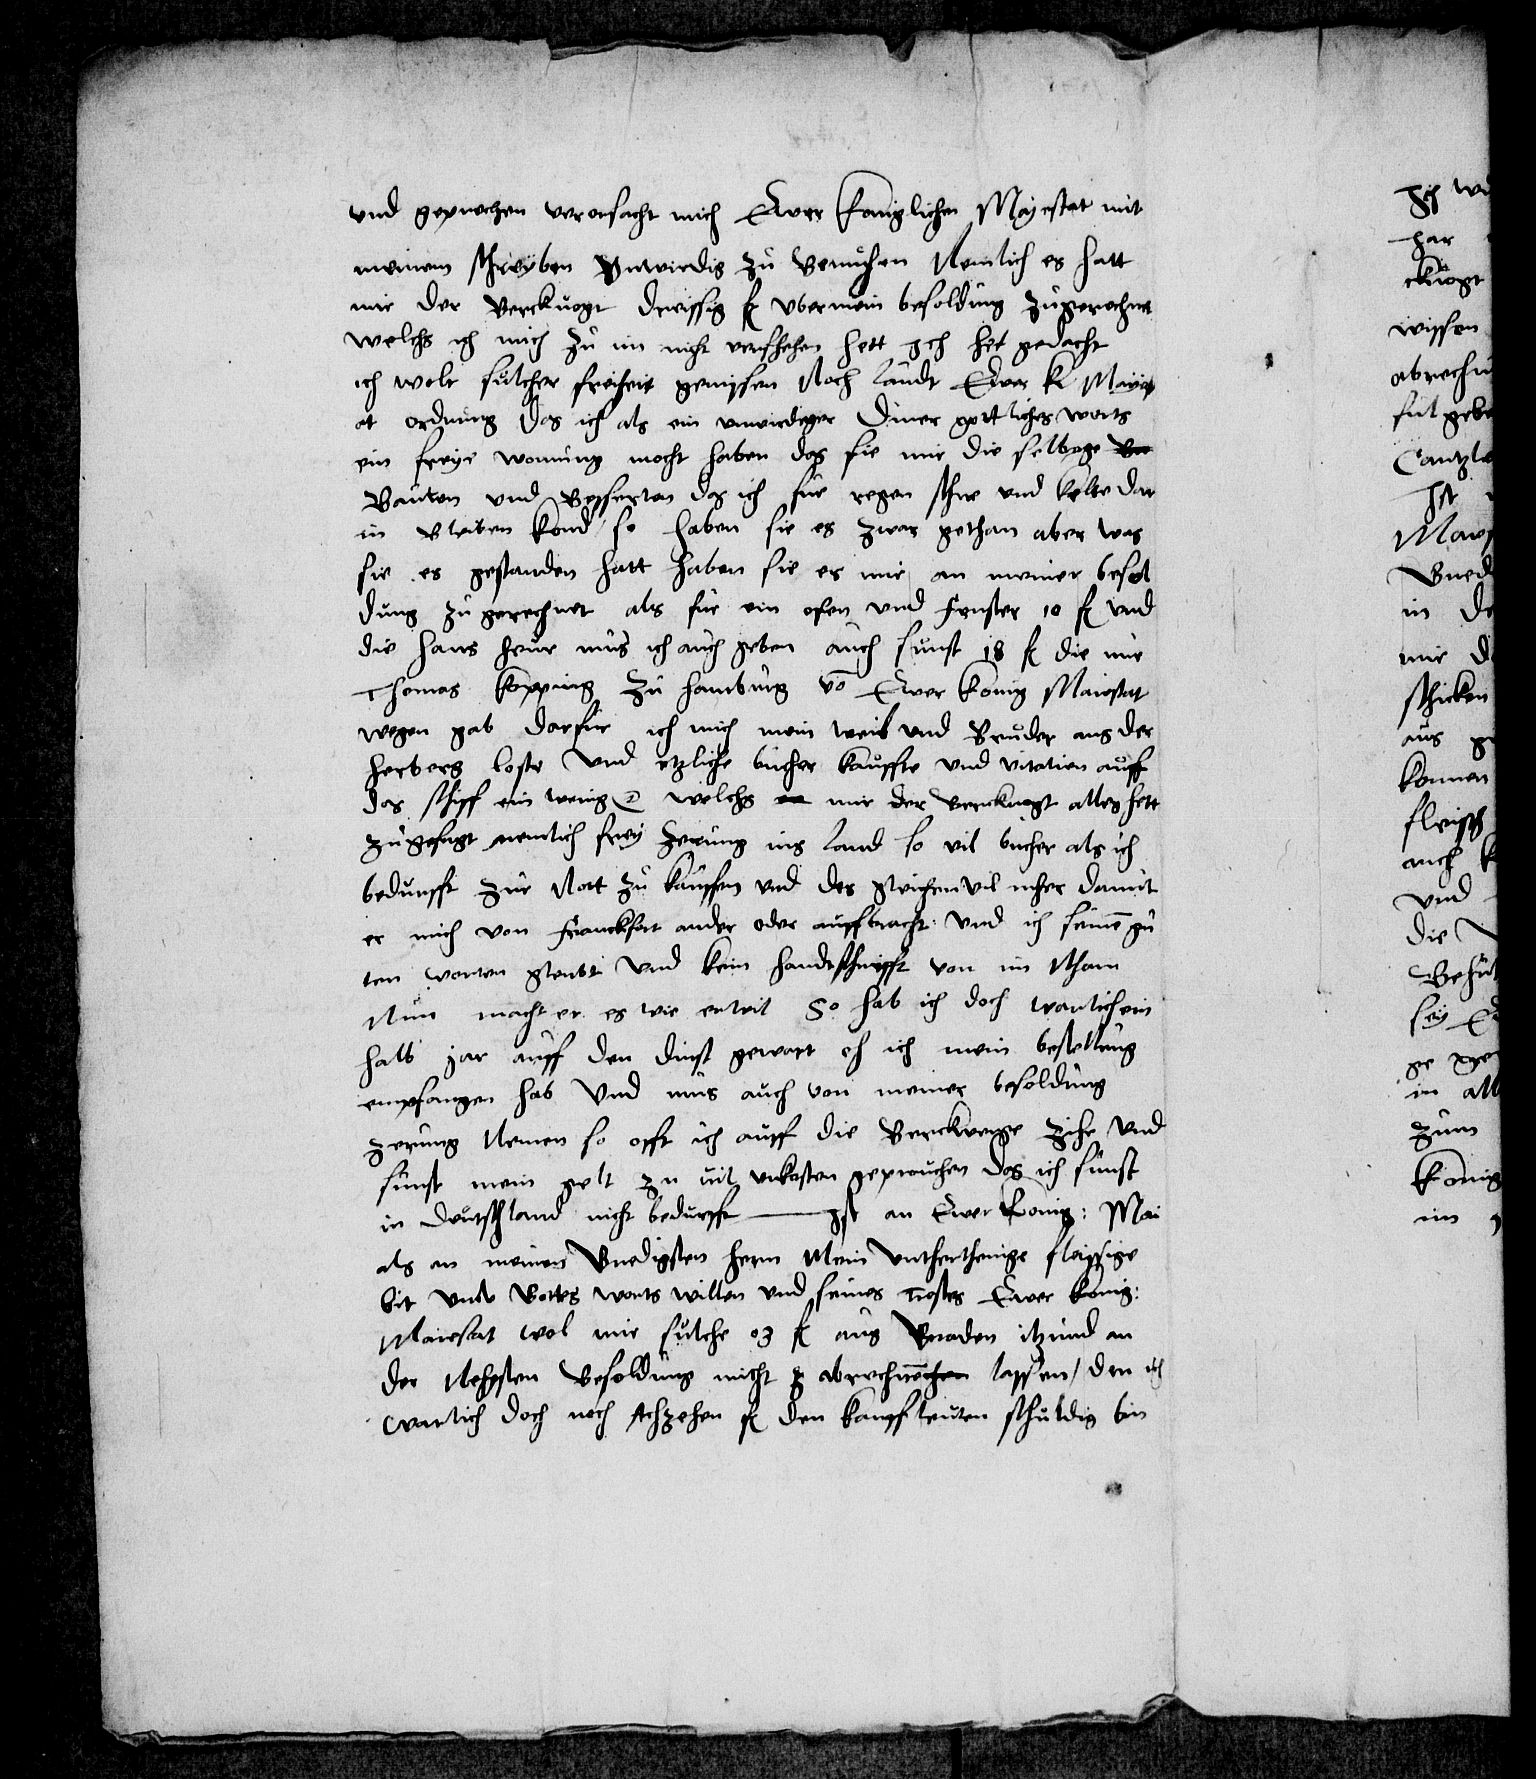 vnd geprechen verorsacht mich Ewer Koniglichen Mayestat mit
meinem schreyben Vnwirdig zu Bemuhen Nemlich es hatt
mir der Berckuogt dreissig fl vber mein besoldung zugerechnet
welchs ich mich zu im nicht versehen hett Ich het gedacht
ich wolt sulcher freiheit genissen Noch laudt Ewer K Mayest
at ordnung das ich als ein vnwirdiger diner gottliches worts
ein freye wonung mocht haben das sie mir die selbige
Bauten vnd Besserten das ich fur regen schne vnd kelte dar
in bleiben kond so haben sie es zwar gethan aber was
sie es gestanden hatt haben sie es mir an meiner besol
dung zu gerechnet als fur ein ofen vnd fenster 10 fl vnd
die haus heur mus ich auch geben auch sunst 18 fl die mir
Thomas Kopping zu hamburg vō Ewer Konig Maiestat
wegen gab darfur ich mich mein weib vnd Bruder aus der
herberg loste vnd etzliche bucher kauffte vnd vitalien auff
das schiff ein wenig welchs mir der Berckuogt alles hett
zugesagt nemlich frey zerung ins land so vil bucher als ich
bedurfft zur Nott zu kauffen vnd des gleichen vil meher damit
er mich von franckfort ander oder auffbracht: vnd ich seinē gu
ten worten glaubt vnd kein handtschrifft von im Nham
Nun macht er es wie er wil So hab ich doch warlich ein
halb jar auff den dinst gewart eh ich mein bestellung
empfangen hab Vnd mus auch von meiner besoldung
zerung Nemen so offt ich auff die Berckwerge zihe vnd
sunst mein gelt zu vil vnkosten geprauchen das ich sunst
in deutschland nicht bedurfft Ist an Ewer Konig: Mai
als an meinen Gnedigsten hern Mein vnthertenige fleissige
bit vmb Gottes worts willen vnd seines Ewer Konig:
Maiestat wol mir sulche fl aus Gnaden itzund an
der Nehesten Besoldung nicht lassen / den ich
warlich doch noch Achzehen fl den kauffleuten schuldig bin
har
ckuogt
wissen
in
mir
schicken
aus
konnen
fleisch
auch
vnd
die
in
zum
Konig
im